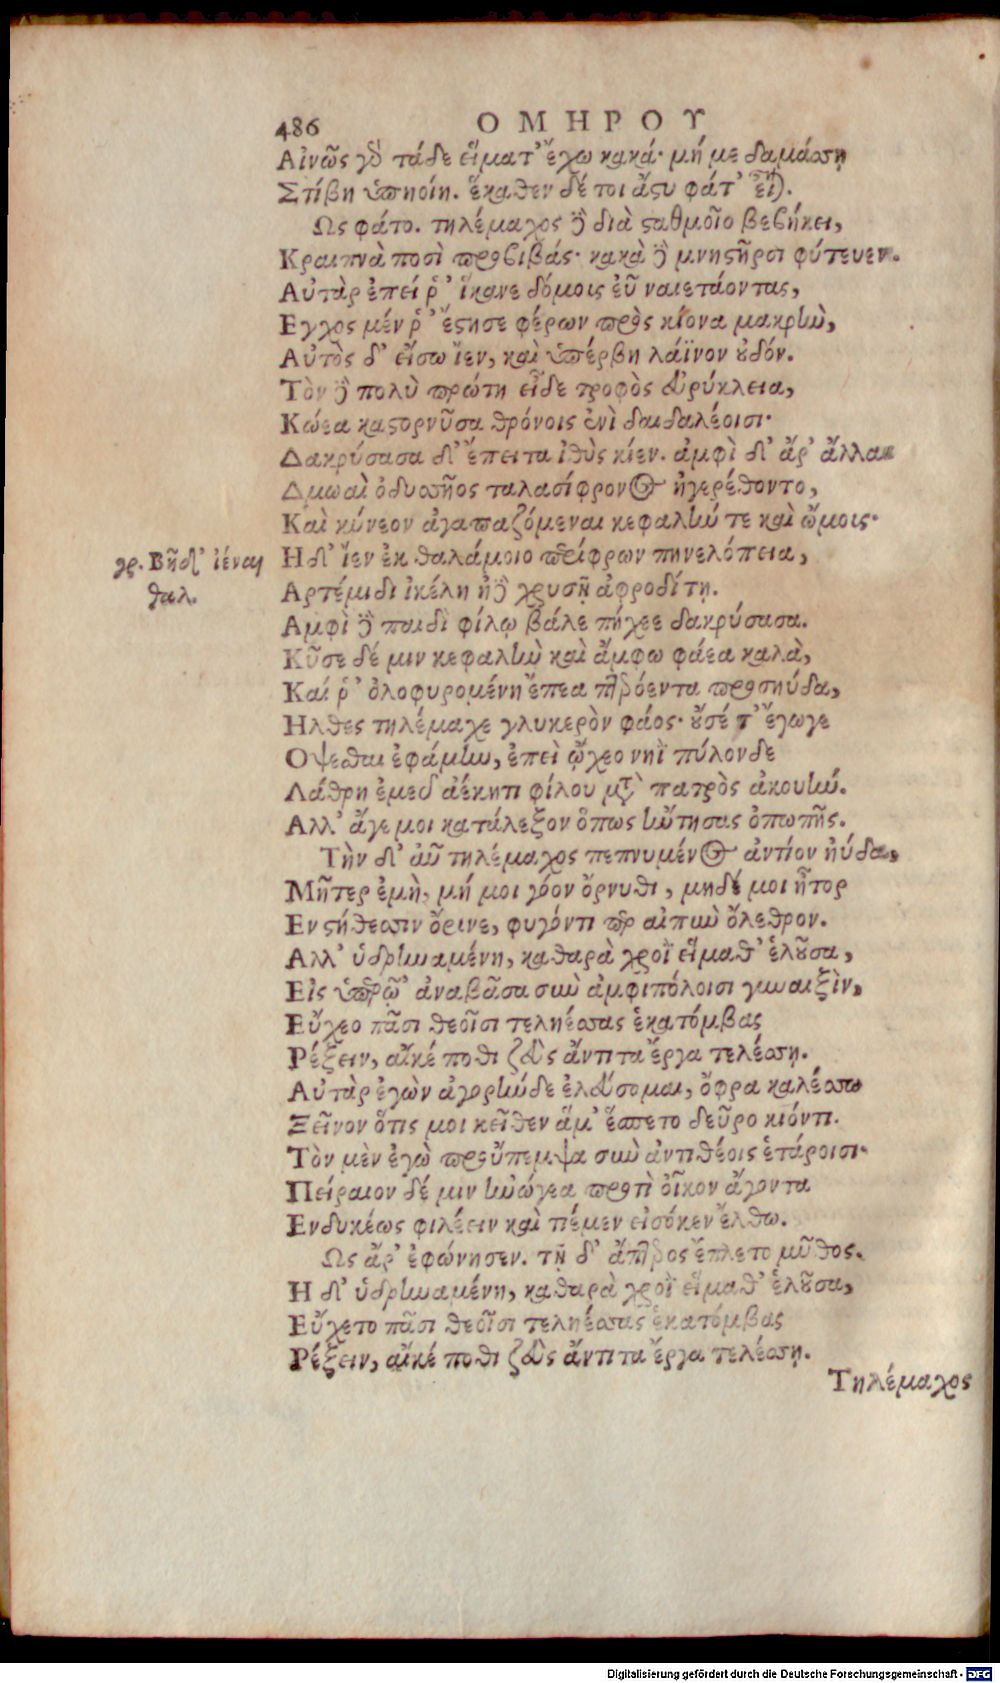 486 ΟΜΗΡΟΥ
Αἰνῶς γὸ τάδε εἵματ' ἔχω κακά· μή με δαμάσση
Στίβη ὑπηοίη. ἕκαθεν δέ τοι ἄστυ φάτ' εἶ).
Ως φάτο. τηλέμαχος δὲ διὰ σταθμοῖο βεβήκει,
Κραιπνὰ ποσὶ προβιβάς· κακὰ δὲ μνηστῆρσι φύτευεν.
Αὐτὰρ ἐπεί ῥ' ἵκανε δόμοις εὖ ναιετάοντας,
Εγχος μέν ῥ' ἔστησε φέρων πρὸς κίονα μακρὴν,
Αὐτὸς δ' εἴσω ἴεν, καὶ ὑπέρβη λάϊνον οὐδόν.
Τὸν δὲ πολὺ πρώτη εἶδε τροφὸς εὐρύκλεια,
Κώεα καστορνῦσα θρόνοις ἐνὶ δαιδαλέοισι·
Δακρύσασα δ' ἔπειτα ἰθὺς κίεν. ἀμφὶ δ' ἄρ' ἄλλαι
Δμωαὶ ὀδυσσῆος ταλασίφρονος ἠγερέθοντο,
Καὶ κύνεον ἀγαπαζόμεναι κεφαλήν τε καὶ ὤμοις·
γρ. Βῆ δ' ἰέναι Η δ' ἴεν ἐκ θαλάμοιο περίφρων πηνελόπεια,
θαλ. Αρτέμιδι ἰκέλη ἠὲ χρυσῇ ἀφροδίτῃ.
Αμφὶ δὲ παιδὶ φίλῳ βάλε πήχεε δακρύσασα.
Κῦσε δέ μιν κεφαλὴν καὶ ἄμφω φάεα καλὰ,
Καί ῥ' ὀλοφυρομένη ἔπεα πτερόεντα προσηύδα,
Ηλθες τηλέμαχε γλυκερὸν φάος· οὔ σέ τ' ἔγωγε
Οψεσθαι ἐφάμην, ἐπεὶ ᾤχεο νηῒ πύλονδε
Λάθρη ἐμεῦ ἀέκητι φίλου μετὰ πατρὸς ἀκουήν.
Αλλ' ἄγε μοι κατάλεξον ὅπως ἤντησας ὀπωπῆς.
Τὴν δ' αὖ τηλέμαχος πεπνυμένος ἀντίον ηὐδα,
Μῆτερ ἐμὴ, μή μοι γόον ὄρνυθι, μηδέ μοι ἦτορ
Εν στήθεσσιν ὄρινε, φυγόντι περ αἰπὺν ὄλεθρον.
Αλλ' ὑδρηναμένη, καθαρὰ χροῒ εἵμαθ' ἑλοῦσα,
Εἰς ὑπερῷ' ἀναβᾶσα σὺν ἀμφιπόλοισι γυναιξὶν,
Εὔχεο πᾶσι θεοῖσι τεληέσσας ἑκατόμβας
Ρέξειν, αἴκέ ποθι ζεὺς ἄντιτα ἔργα τελέσση.
Αὐτὰρ ἐγὼν ἀγορήνδε ἐλεύσομαι, ὄφρα καλέσσω
Ξεῖνον ὅτις μοι κεῖθεν ἅμ' ἕσπετο δεῦρο κιόντι.
Τὸν μὲν ἐγὼ προὔπεμψα σὺν ἀντιθέοις ἑτάροισι·
Πείραιον δέ μιν ἠνώγεα προτὶ οἶκον ἄγοντα
Ενδυκέως φιλέειν καὶ τιέμεν εἰσόκεν ἔλθω.
Ως ἄρ' ἐφώνησεν. τῇ δ' ἄπτερος ἔπλετο μῦθος.
Η δ' ὑδρηναμένη, καθαρὰ χροῒ εἵμαθ' ἑλοῦσα,
Εὔχετο πᾶσι θεοῖσι τεληέσσας ἑκατόμβας
Ρέξειν, αἴκέ ποθι ζεὺς ἄντιτα ἔργα τελέσσῃ.
Τηλέμαχος
Digitalisierung gefördert durch die Deutsche Forschungsgemeinschaft - DFG